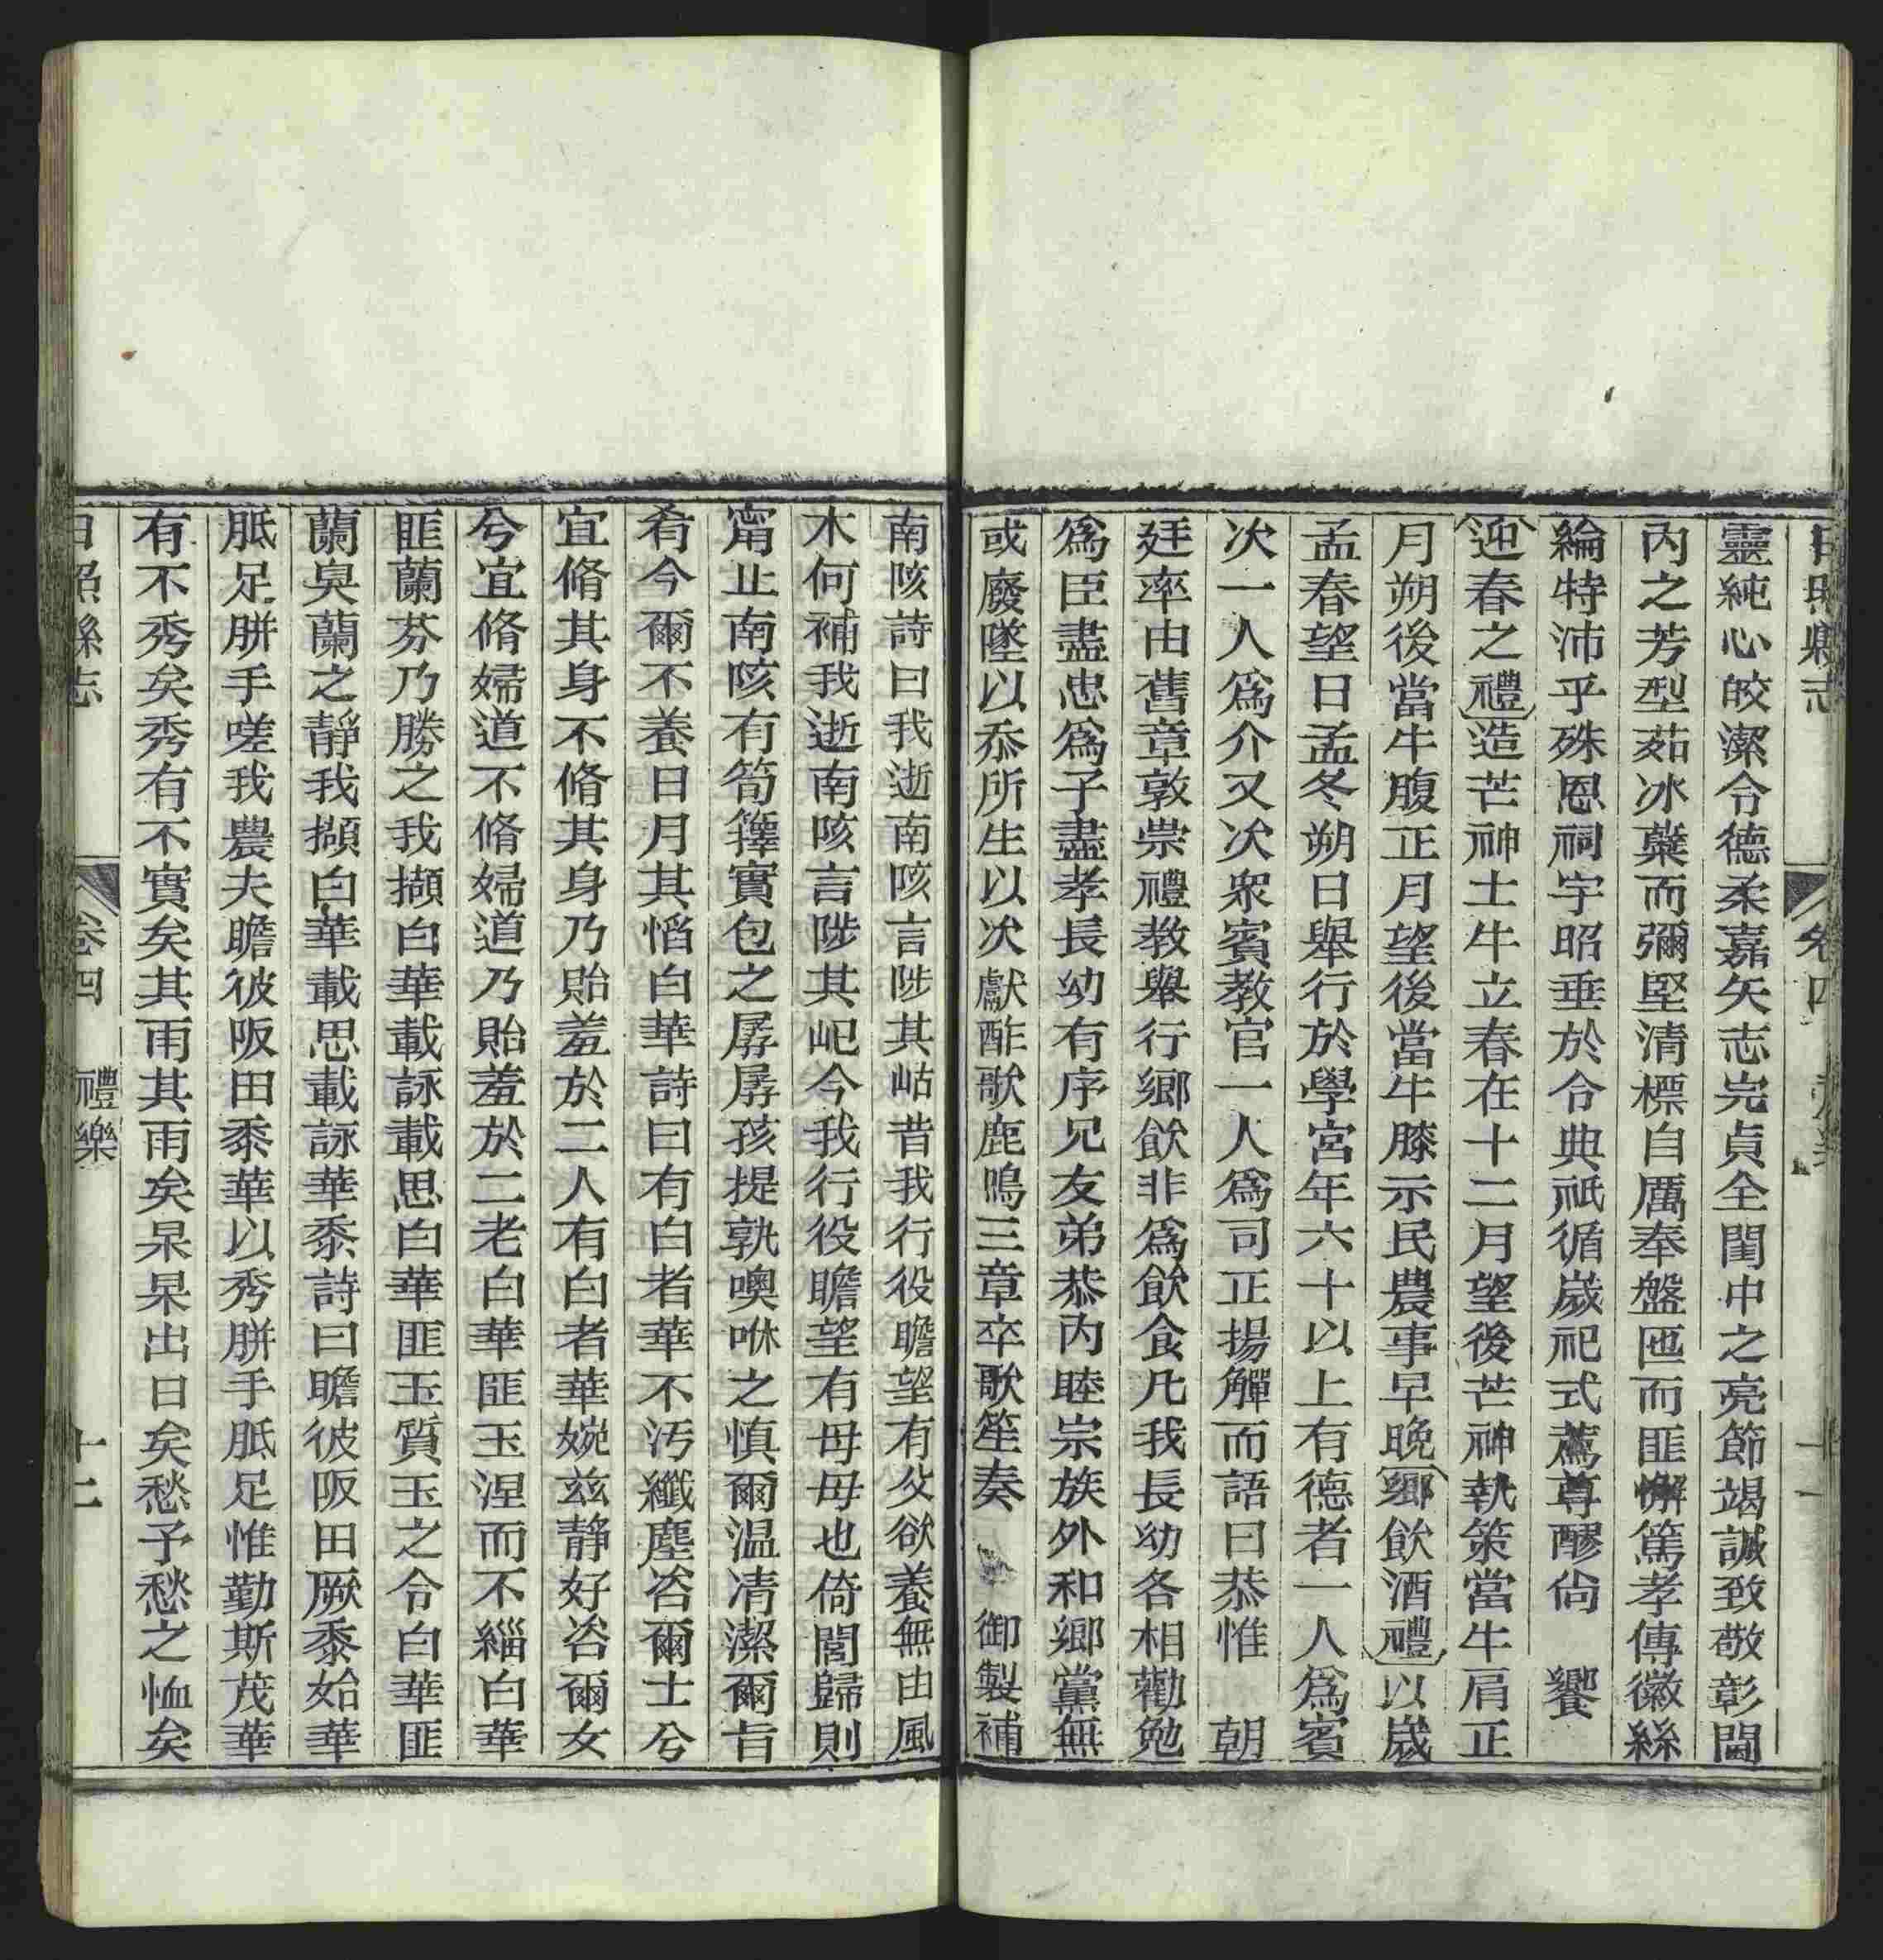 日照縣志 卷四
靈純心皎潔令德柔嘉矢志完貞全閨中之亮節竭誠致敬彰閫
內之芳型茹冰蘗而彌堅清標自厲奉盤匜而匪懈篤孝傳徽絲
綸特沛乎殊恩祠宇昭垂於令典祇循歲祀式薦尊醪尙 饗
迎春之禮造芒神土牛立春在十二月望後芒神執策當牛肩正
月朔後當牛腹正月望後當牛膝示民農事早晚鄉飲酒禮以歲
孟春望日孟冬朔日舉行於學宮年六十以上有德者一人爲賓
次一人爲介又次衆賓教官一人爲司正揚觶而語曰恭惟 朝
廷率由舊章敦崇禮教舉行鄉飲非爲飲食凡我長幼各相勸勉
爲臣盡忠爲子盡孝長幼有序兄友弟恭內睦宗族外和鄉黨無
或廢墜以忝所生以次獻酢歌鹿鳴三章卒歌笙奏 御製補
南陔詩曰我逝南陔言陟其岵昔我行役瞻望有父欲養無由風
木何補我逝南陔言陟其屺今我行役瞻望有母母也倚閭歸則
甯止南陔有筍籜實包之孱孱孩提孰噢咻之慎爾温凊潔爾旨
肴今爾不養日月其慆白華詩曰有白者華不汚纖塵咨爾士兮
宜脩其身不脩其身乃貽羞於二人有白者華婉兹靜好咨爾女
兮宜脩婦道不脩婦道乃貽羞於二老白華匪玉涅而不緇白華
匪蘭芬乃勝之我擷白華載詠載思白華匪玉質玉之令白華匪
蘭臭蘭之靜我擷白華載思載詠華黍詩曰瞻彼阪田厥黍始華
胝足胼手嗟我農夫瞻彼阪田黍華以秀胼手胝足惟勤斯茂華
有不秀矣秀有不實矣其雨其雨矣杲杲出日矣愁予愁之恤矣
日照縣志 卷四 禮樂 十二